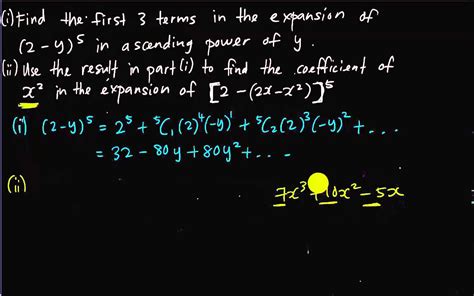 (i) Find the first 3 terms in the expansion of
(2-y)⁵ in ascending power of y.
(ii) Use the result in part (i) to find the coefficient of
x² in the expansion of [2-(2x-x²)]⁵
(i) (2-y)⁵ = 2⁵ + ⁵C₁(2)⁴(-y)¹ + ⁵C₂(2)³(-y)² + ...
= 32 - 80y + 80y² + ...
(ii)
7x³ + 10x² - 5x